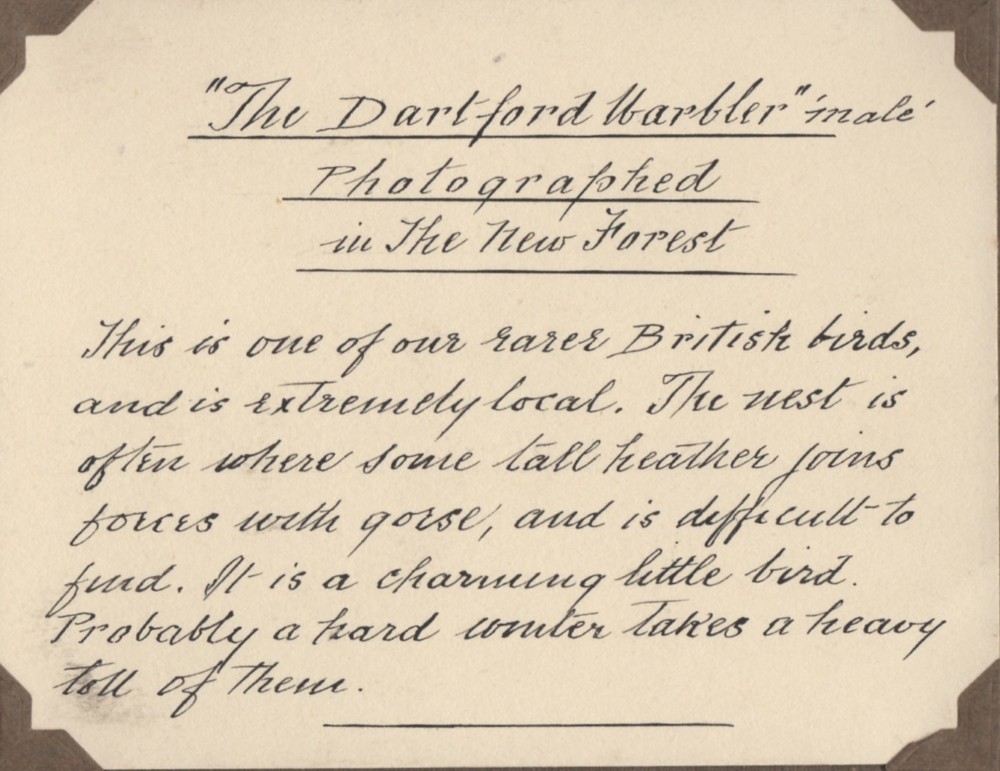 "The Dartford Warbler" 'male'
Photographed
in The New Forest
This is one of our rarer British birds,
and is extremely local. The nest is
often where some tall heather joins
forces with gorse, and is difficult to
find. It is a charming little bird.
Probably a hard winter takes a heavy
toll of them.